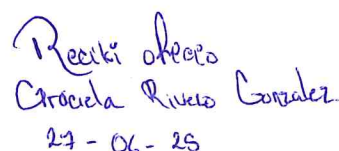 Recibi oficio
Graciela Rivero Gonzalez
27 - 06 - 25